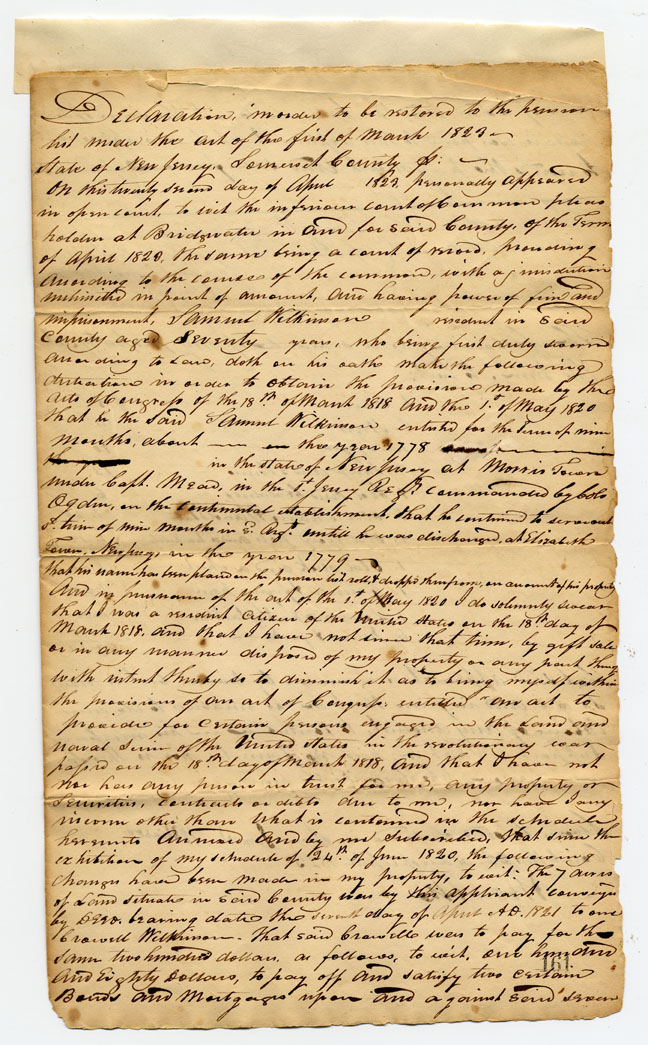 Declaration, in order to be restored to the pension
list under the act of the first of March 1823 –
State of New Jersey, Somerset County ss: –
On this twenty second day of April 1823, personally appeared
in open court, to wit the inferiour court of Common pleas
holden at Bridgwater in and for said County, of the Term
of April 1823, the same being a court of record, proceeding
according to the course of the common, with a jurisdiction
unlimitted in point of amount, and having power of fine and
imprisonment, Samuel Wilkinson resident in said
County aged Seventy years, who being first duly sworn
according to Law, doth on his oath make the following
declaration in order to obtain the provision made by the
acts of Congress of the 18th of March 1818 and the 1st of May 1820
that he the said Samuel Wilkinson enlisted for the Term of nine
months, about the year 1778
in the State of New Jersey at Morris Town
under Capt. Mead, in the 1st Jersey Regt commanded by Colo
Ogden, on the continental establishment, that he continued to serve out
sd term of nine months in sd Regt untill he was discharged, at Elizabeth
Town, New Jersey in the year 1779 –
that his name has been placed on the pension list roll, & dropd therefrom, on account of his property
And in pursuance of the act of the 1st of May 1820 I do solemnly swear
that I was a resident Citizen of the United States on the 18th day of
March 1818, and that I have not since that time, by gift sale
or in any manner disposed of my property or any part thereof
with intent thereby so to diminish it as to bring myself within
the provisions of an act of Congress entitled "an act to
provide for certain persons engaged in the Land and
naval Service of the United States in the revolutionary war
passed on the 18th day of March 1818, And that I have not
nor has any person in trust for me, any property or
Securities, contracts or debts due to me, nor have I any
income other than what is contained in the schedule
hereunto annexed and by me subscribed, that since the
exhibition of my schedule of 24th of June 1820, the following
changes have been made in my property, to wit: The 7 acres
of Land situate in said County was by this applicant conveyed
by Deed bearing date the seventh day of April A.D. 1821 to one
Crowell Wilkinson. That said Crowell was to pay for the
same two hundred dollars. as follows, to wit, one hundred
and Eighty Dollars, to pay off and satisfy two certain
Bonds and Mortgages upon and against said seven